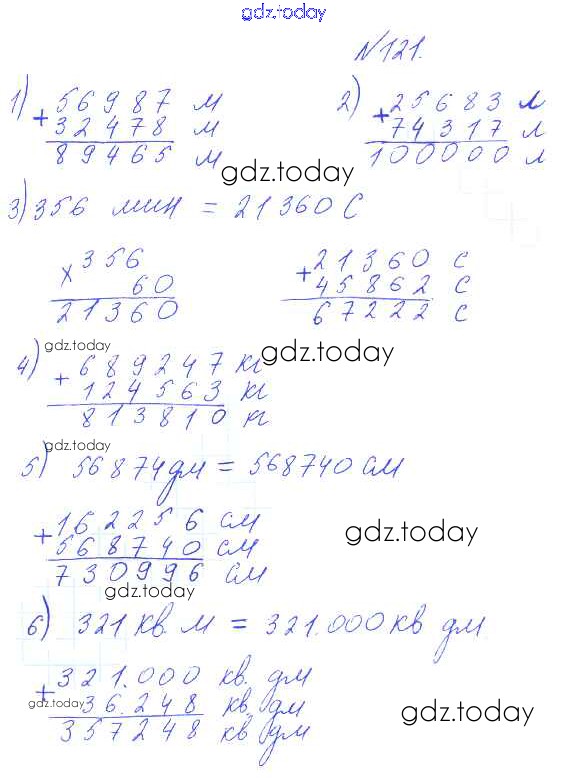 gdz.today
№121.
1) + 56987 м
32478 м
89465 м
2) + 25683 л
74317 л
100000 л
gdz.today
3) 356 мин = 21360 с
× 356
60
21360
+ 21360 с
45862 с
67222 с
gdz.today
gdz.today
4) + 689247 кг
124563 кг
813810 кг
gdz.today
5) 56874 дм = 568740 см
+ 162256 см
568740 см
730996 см
gdz.today
gdz.today
6) 321 кв. м = 321.000 кв дм
+ 321.000 кв. дм
36.248 кв. дм
357248 кв дм
gdz.today
gdz.today